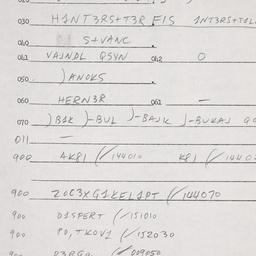 030 H1NT3RS+T3R FIS
040 S+VANC
041 VAJNDL QSYN 042 0
050 )ANOKS
060 HERN3R 061 —
070 )B1K )-BUL )-BAJK )-BUKAJ
011 —
900 4K81 (/144010 K81 (/1440
900 20C3XG1KEL1PT (/144070
900 D1SPERT (/151010
900 PO,TKOV1 (/152030
900 (/009050